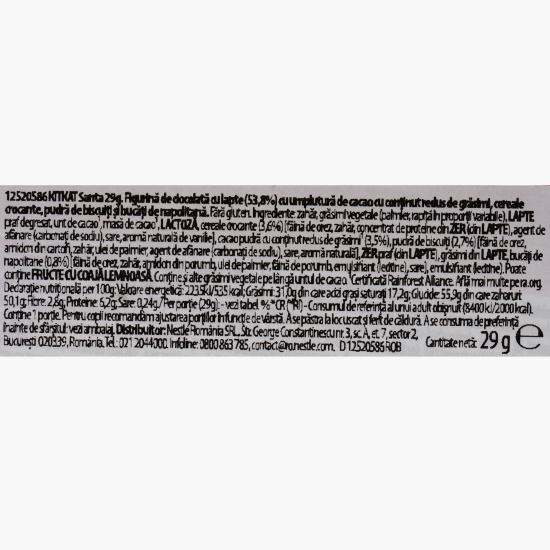 12520586 KITKAT Santa 29g. Figurină de ciocolată cu lapte (53,8%) cu umplutură de cacao cu conținut redus de grăsimi, cereale
crocante, pudră de biscuiți și bucăți de napolitană. Fără gluten. Ingrediente: zahăr, grăsimi vegetale (palmier, rapiță în proporții variabile), LAPTE
praf degresat, unt de cacao¹, masă de cacao¹, LACTOZĂ, cereale crocante (3,6%) [făină de orez, zahăr, concentrat de proteine din ZER (din LAPTE), agent de
afânare (carbonat de sodiu), sare, aromă naturală de vanilie], cacao pudră cu conținut redus de grăsimi¹ (3,5%), pudră de biscuiți (2,7%) [făină de orez,
amidon din cartofi, zahăr, ulei de palmier, agent de afânare (carbonați de sodiu), sare, aromă naturală], ZER praf (din LAPTE), grăsimi din LAPTE, bucăți de
napolitane (0,8%) [făină de orez, zahăr, amidon din porumb, ulei de palmier, făină de porumb, emulsifiant (lecitine), sare], emulsifiant (lecitine). Poate
conține FRUCTE CU COAJĂ LEMNOASĂ. Conține și alte grăsimi vegetale pe lângă untul de cacao. ¹Certificată Rainforest Alliance. Află mai multe pe ra.org.
Declarație nutrițională per 100g: Valoare energetică: 2235kJ/535kcal; Grăsimi: 31,0g din care acizi grași saturați 17,2g; Glucide: 55,9g din care zaharuri:
50,1g; Fibre: 2,8g; Proteine: 6,2g; Sare: 0,24g. / Per porție (29g) - vezi tabel. %*CR (*RI) - Consumul de referință al unui adult obișnuit (8400 kJ/2000 kcal).
Conține 1 porție. Pentru copii recomandăm ajustarea porțiilor în funcție de vârstă. A se păstra la loc uscat și ferit de căldură. A se consuma de preferință
înainte de sfârșitul: vezi ambalaj. Distribuitor: Nestlé România SRL, Str. George Constantinescu nr. 3, sc. A, et. 7, sector 2,
București 020339, România. Tel.: 021 2044000. Infoline: 0800 863 785, contact@ro.nestle.com. D 12520586 ROB
Cantitate netă: 29 g ℮